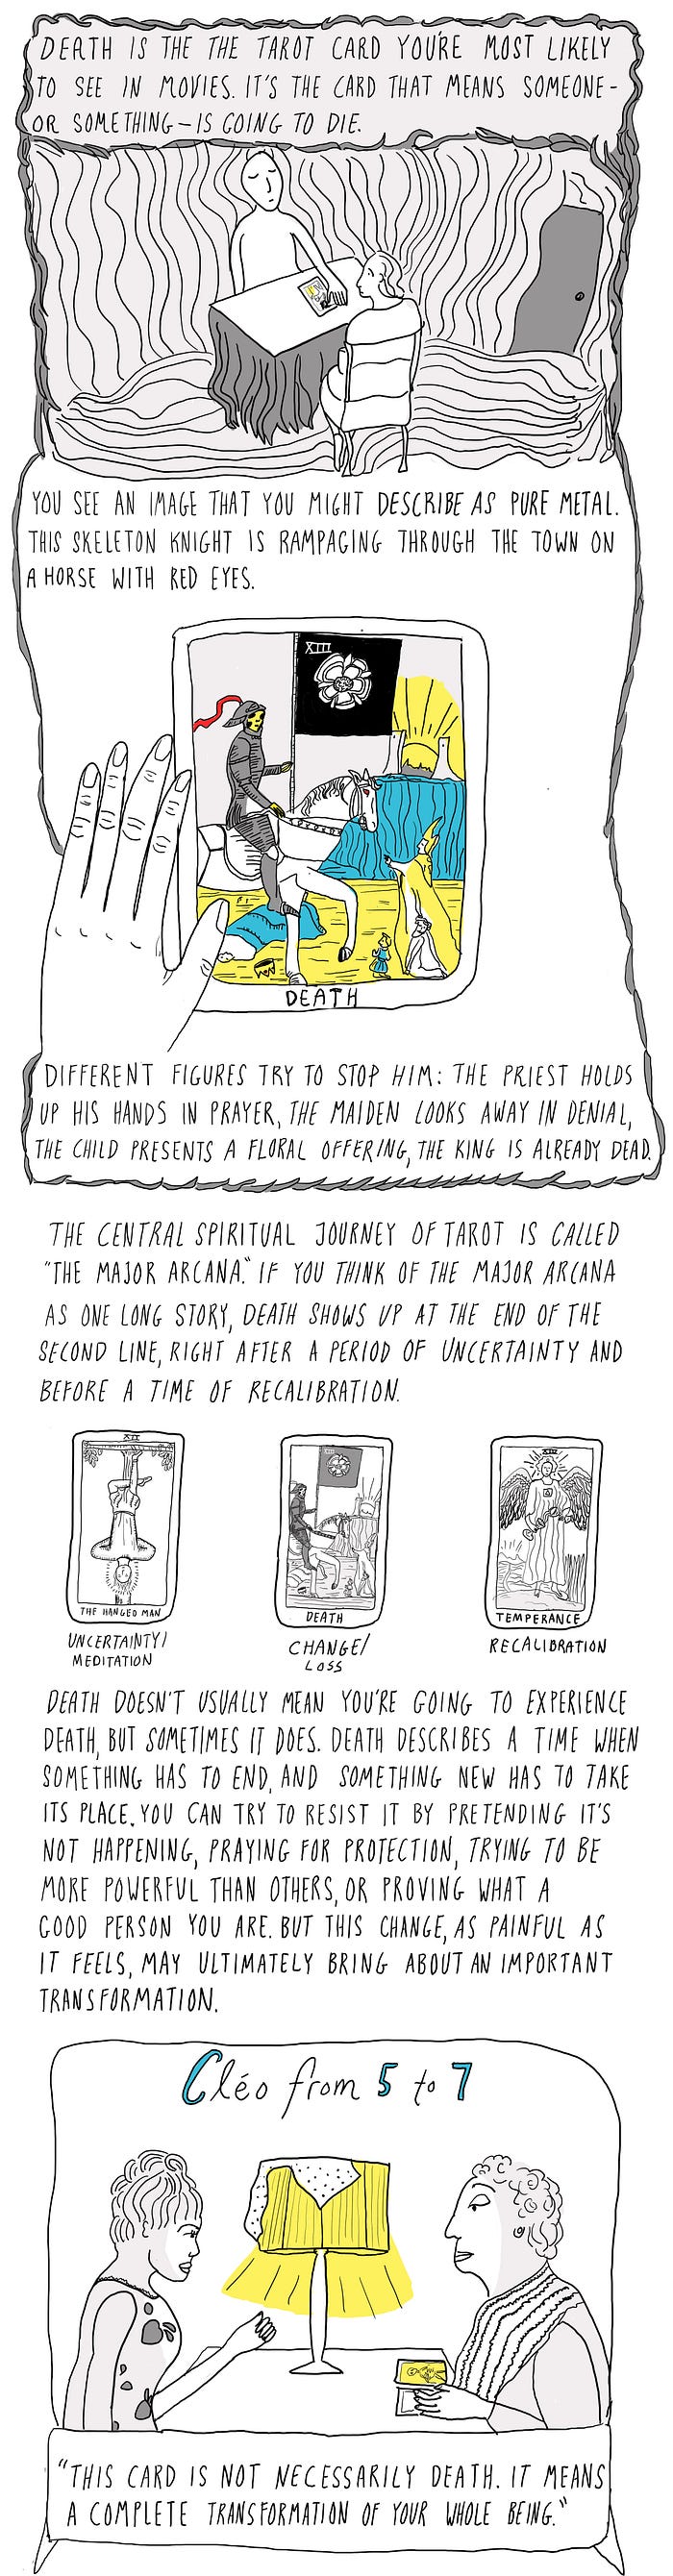 DEATH IS THE THE TAROT CARD YOU'RE MOST LIKELY
TO SEE IN MOVIES. IT'S THE CARD THAT MEANS SOMEONE-
OR SOMETHING-IS GOING TO DIE.
YOU SEE AN IMAGE THAT YOU MIGHT DESCRIBE AS PURE METAL.
THIS SKELETON KNIGHT IS RAMPAGING THROUGH THE TOWN ON
A HORSE WITH RED EYES.
XIII
DEATH
DIFFERENT FIGURES TRY TO STOP HIM: THE PRIEST HOLDS
UP HIS HANDS IN PRAYER, THE MAIDEN LOOKS AWAY IN DENIAL,
THE CHILD PRESENTS A FLORAL OFFERING, THE KING IS ALREADY DEAD.
THE CENTRAL SPIRITUAL JOURNEY OF TAROT IS CALLED
"THE MAJOR ARCANA." IF YOU THINK OF THE MAJOR ARCANA
AS ONE LONG STORY, DEATH SHOWS UP AT THE END OF THE
SECOND LINE, RIGHT AFTER A PERIOD OF UNCERTAINTY AND
BEFORE A TIME OF RECALIBRATION.
XII
THE HANGED MAN
UNCERTAINTY/
MEDITATION
DEATH
CHANGE/
LOSS
TEMPERANCE
RECALIBRATION
DEATH DOESN'T USUALLY MEAN YOU'RE GOING TO EXPERIENCE
DEATH, BUT SOMETIMES IT DOES. DEATH DESCRIBES A TIME WHEN
SOMETHING HAS TO END, AND SOMETHING NEW HAS TO TAKE
ITS PLACE. YOU CAN TRY TO RESIST IT BY PRETENDING IT'S
NOT HAPPENING, PRAYING FOR PROTECTION, TRYING TO BE
MORE POWERFUL THAN OTHERS, OR PROVING WHAT A
GOOD PERSON YOU ARE. BUT THIS CHANGE, AS PAINFUL AS
IT FEELS, MAY ULTIMATELY BRING ABOUT AN IMPORTANT
TRANSFORMATION.
Cléo from 5 to 7
"THIS CARD IS NOT NECESSARILY DEATH. IT MEANS
A COMPLETE TRANSFORMATION OF YOUR WHOLE BEING."